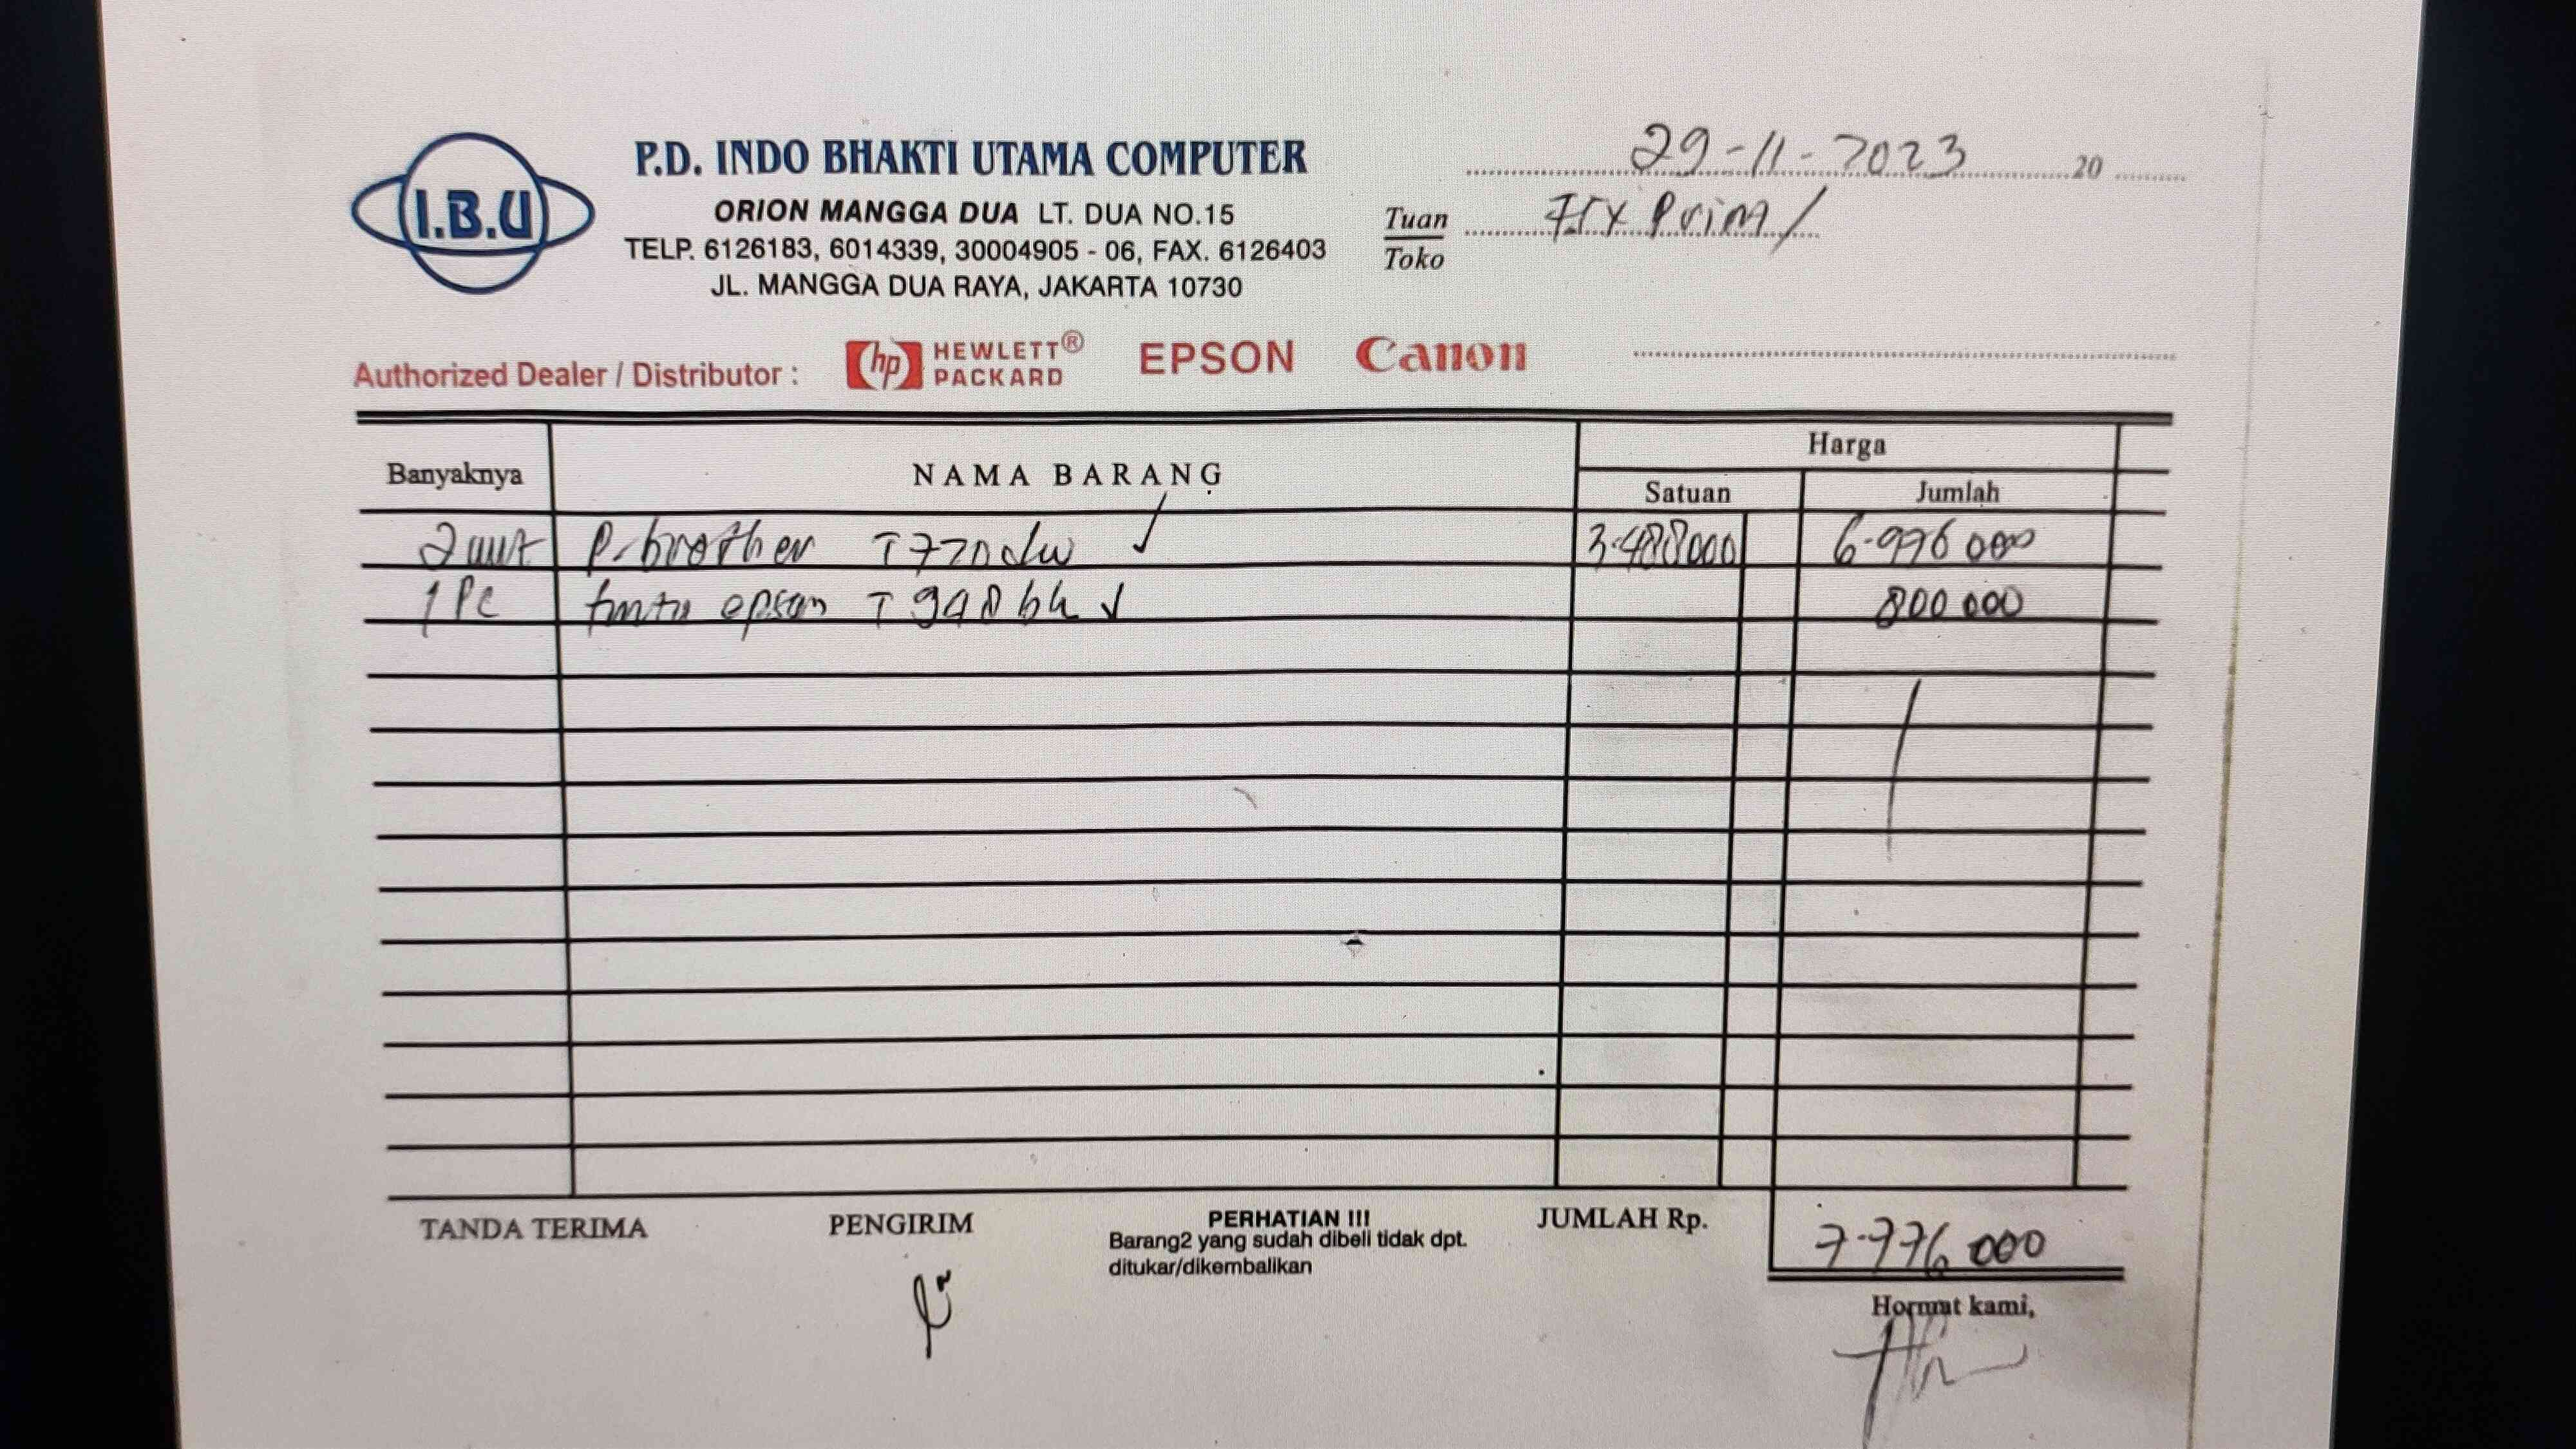 I.B.U
P.D. INDO BHAKTI UTAMA COMPUTER
ORION MANGGA DUA LT. DUA NO.15
TELP. 6126183, 6014339, 30004905 - 06, FAX. 6126403
JL. MANGGA DUA RAYA, JAKARTA 10730
29-11-2023 20
Tuan
Toko
Authorized Dealer / Distributor : hp HEWLETT® PACKARD EPSON Canon
Banyaknya NAMA BARANG Harga
Satuan Jumlah
2 unit P-brother T720dw 3.488000 6.976000
1 Pc tinta epson T948 bk 800 000
TANDA TERIMA PENGIRIM PERHATIAN !!! JUMLAH Rp. 7.776.000
Barang2 yang sudah dibeli tidak dpt.
ditukar/dikembalikan
Hormat kami,